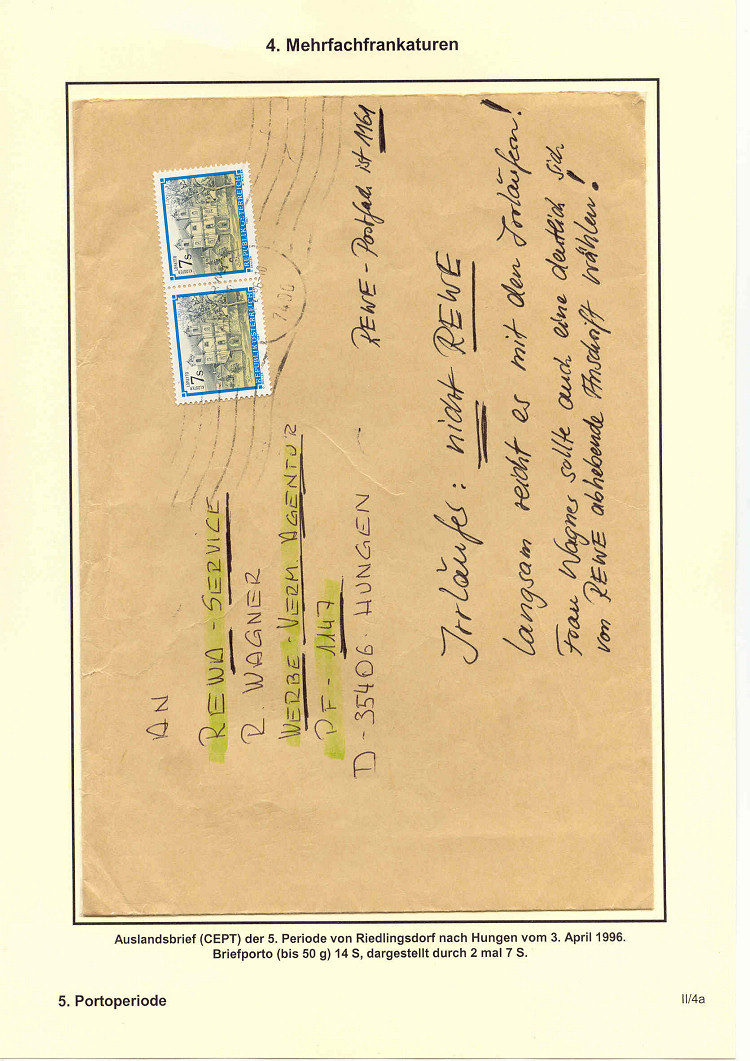 4. Mehrfachfrankaturen
7 S
REPUBLIK ÖSTERREICH
7 S
REPUBLIK ÖSTERREICH
AN
REWA - SERVICE
R. WAGNER
WERBE - VERM. AGENTUR
PF - 1147
D - 35406 HUNGEN
REWE - Postfach ist 1161
Irrläufer: nicht REWE
Langsam reicht es mit den Irrläufern!
Frau Wagner sollte auch eine deutlich sich
von REWE abhebende Anschrift wählen!
Auslandsbrief (CEPT) der 5. Periode von Riedlingsdorf nach Hungen vom 3. April 1996.
Briefporto (bis 50 g) 14 S, dargestellt durch 2 mal 7 S.
5. Portoperiode
II/4a